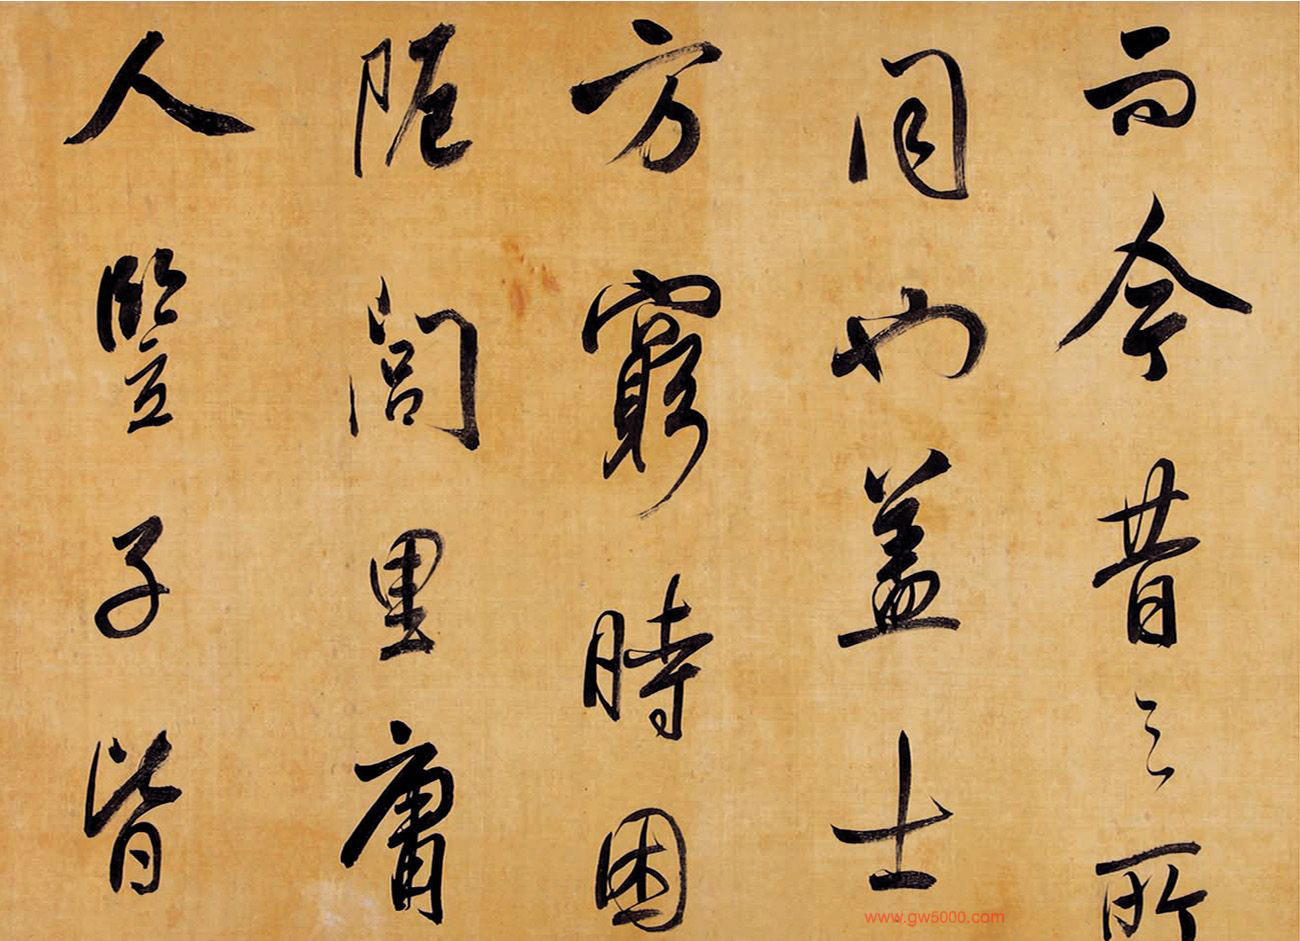 而今昔之所
同也盖士
方窮時困
阨閭里庸
人豎子皆
www.gw5000.com